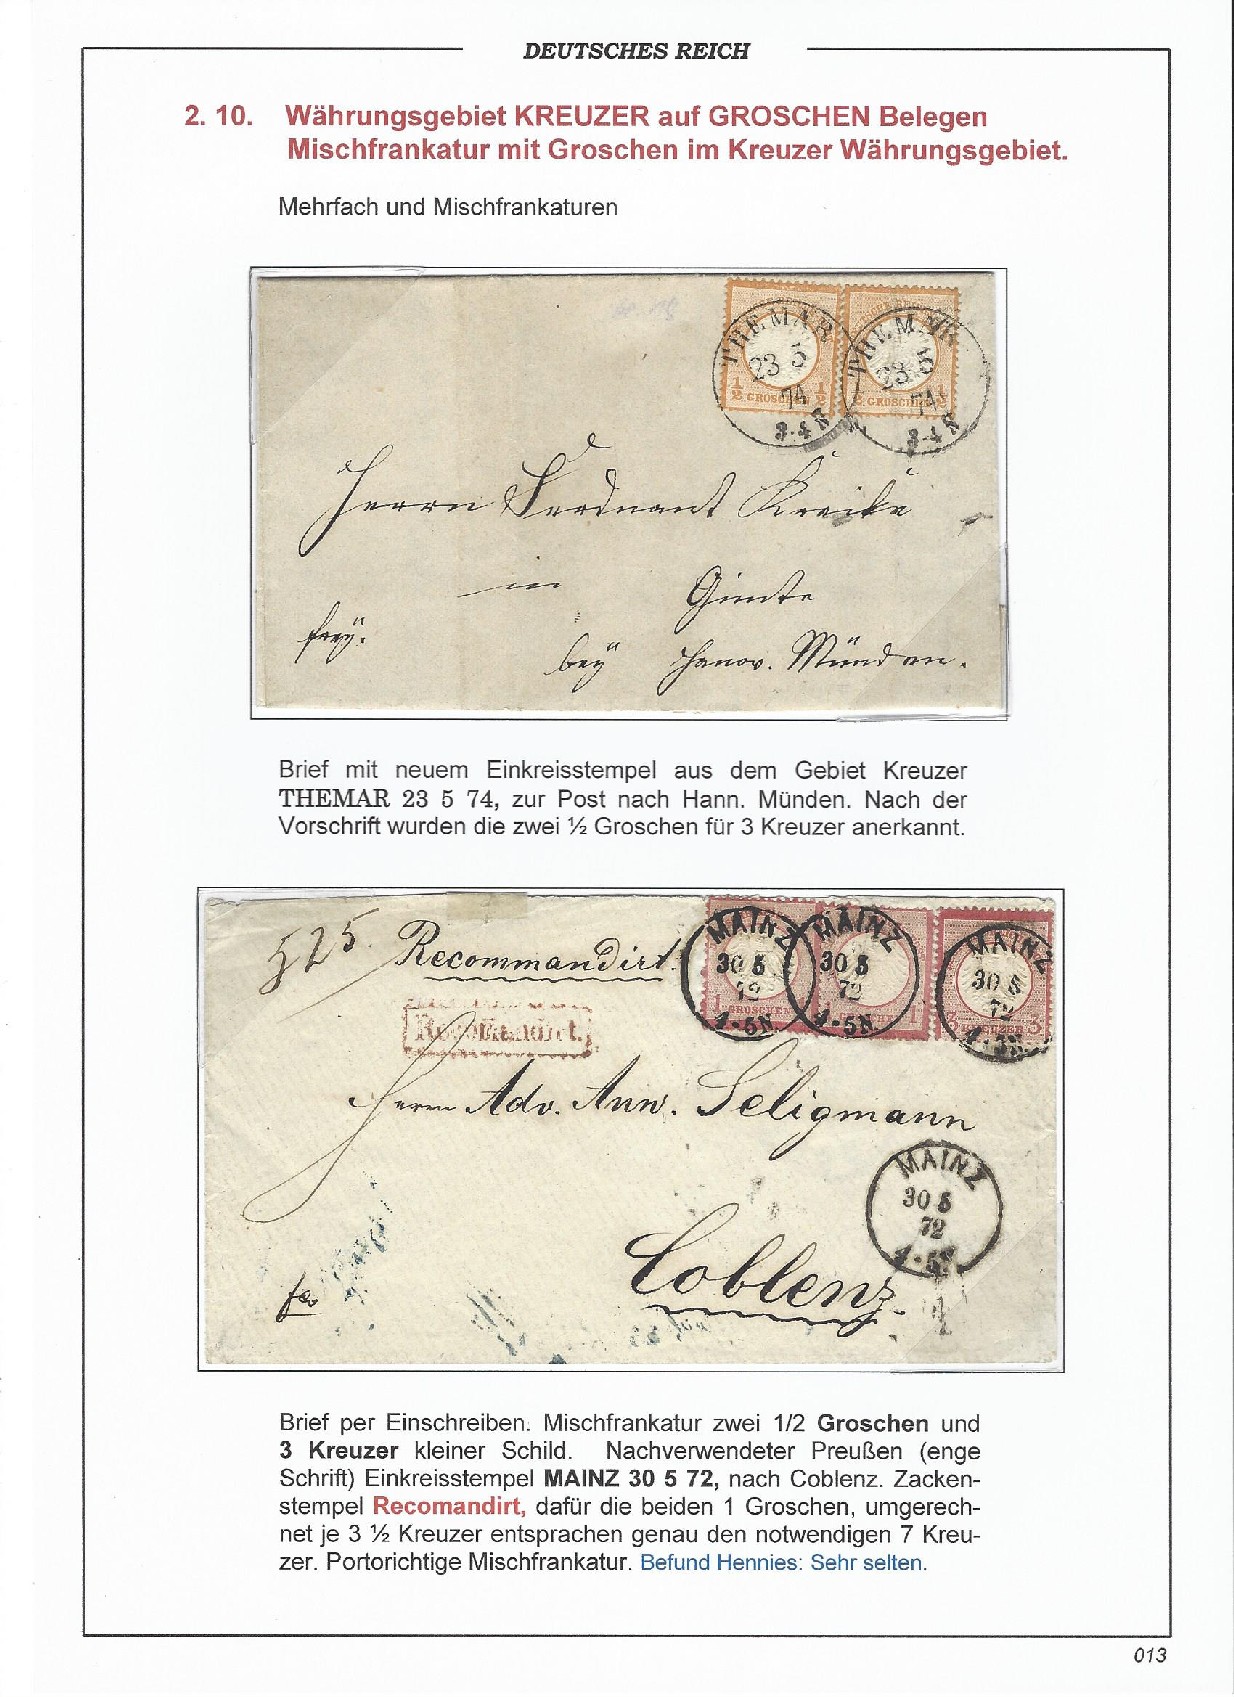 DEUTSCHES REICH
2. 10. Währungsgebiet KREUZER auf GROSCHEN Belegen
Mischfrankatur mit Groschen im Kreuzer Währungsgebiet.
Mehrfach und Mischfrankaturen
THEMAR
23 5
74
3-4 N
THEMAR
23 5
74
3-4 N
½ GROSCHEN ½
½ GROSCHEN ½
Herrn Ferdnant Kreike
in Gimte
frey.
bey Hanov. Münden.
Brief mit neuem Einkreisstempel aus dem Gebiet Kreuzer
THEMAR 23 5 74, zur Post nach Hann. Münden. Nach der
Vorschrift wurden die zwei ½ Groschen für 3 Kreuzer anerkannt.
525. Recommandirt.
MAINZ
30 5
72
4-5N.
MAINZ
30 5
72
4-5N.
MAINZ
30 5
72
1 GROSCHEN
1
3 KREUZER 3
Recomandirt.
Herrn Adv. Anw. Seligmann
MAINZ
30 5
72
4-5N
Coblenz.
fco
Brief per Einschreiben. Mischfrankatur zwei 1/2 Groschen und
3 Kreuzer kleiner Schild. Nachverwendeter Preußen (enge
Schrift) Einkreisstempel MAINZ 30 5 72, nach Coblenz. Zacken-
stempel Recomandirt, dafür die beiden 1 Groschen, umgerech-
net je 3 ½ Kreuzer entsprachen genau den notwendigen 7 Kreu-
zer. Portorichtige Mischfrankatur. Befund Hennies: Sehr selten.
013